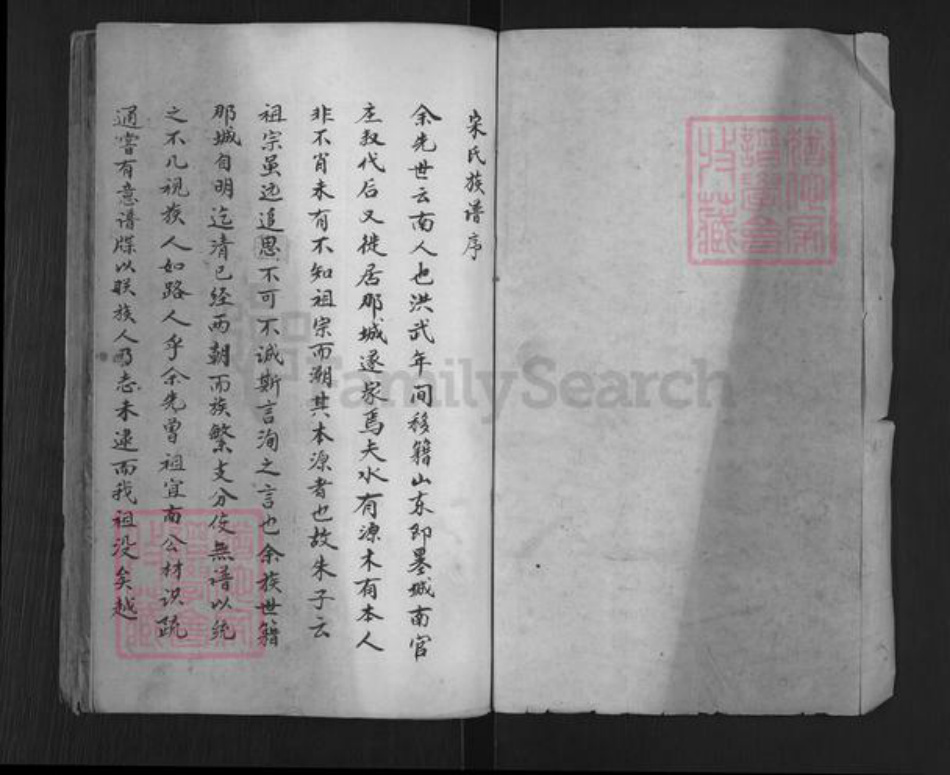 宋氏族谱序
余先世云南人也洪武年间移籍山东即墨城南官
庄叔代后又徙居那城遂家焉夫水有源木有本人
非不肖未有不知祖宗而溯其本源者也故朱子云
祖宗虽远追思不可不诚斯言洵之言也余族世籍
那城自明迄清已经两朝而族繁支分使無谱以统
之不几视族人如路人乎余先曾祖宜南公材识疏
通嘗有意谱牒以联族人乃志未逮而我祖没矣越
FamilySearch